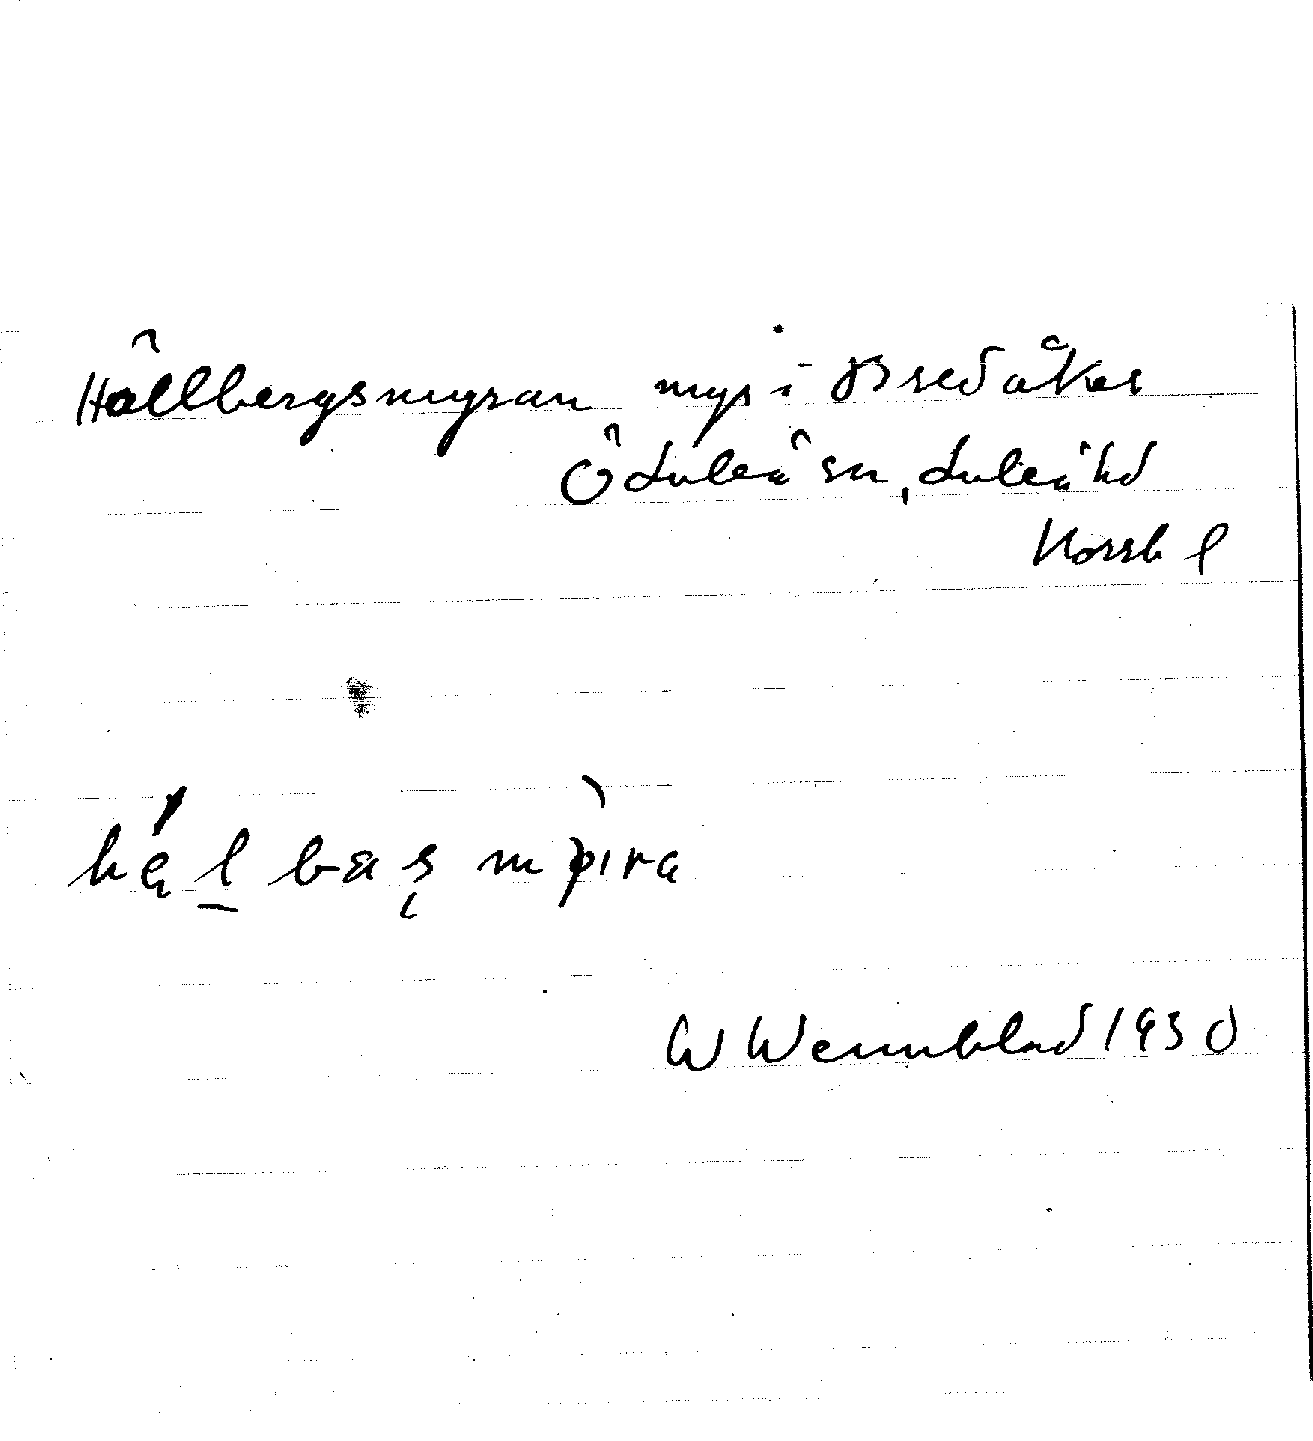 Hållbergsmyran myr i Bredåker
ÖLuleå sn, Luleå hd
Norrb l
W Wennblad 1930